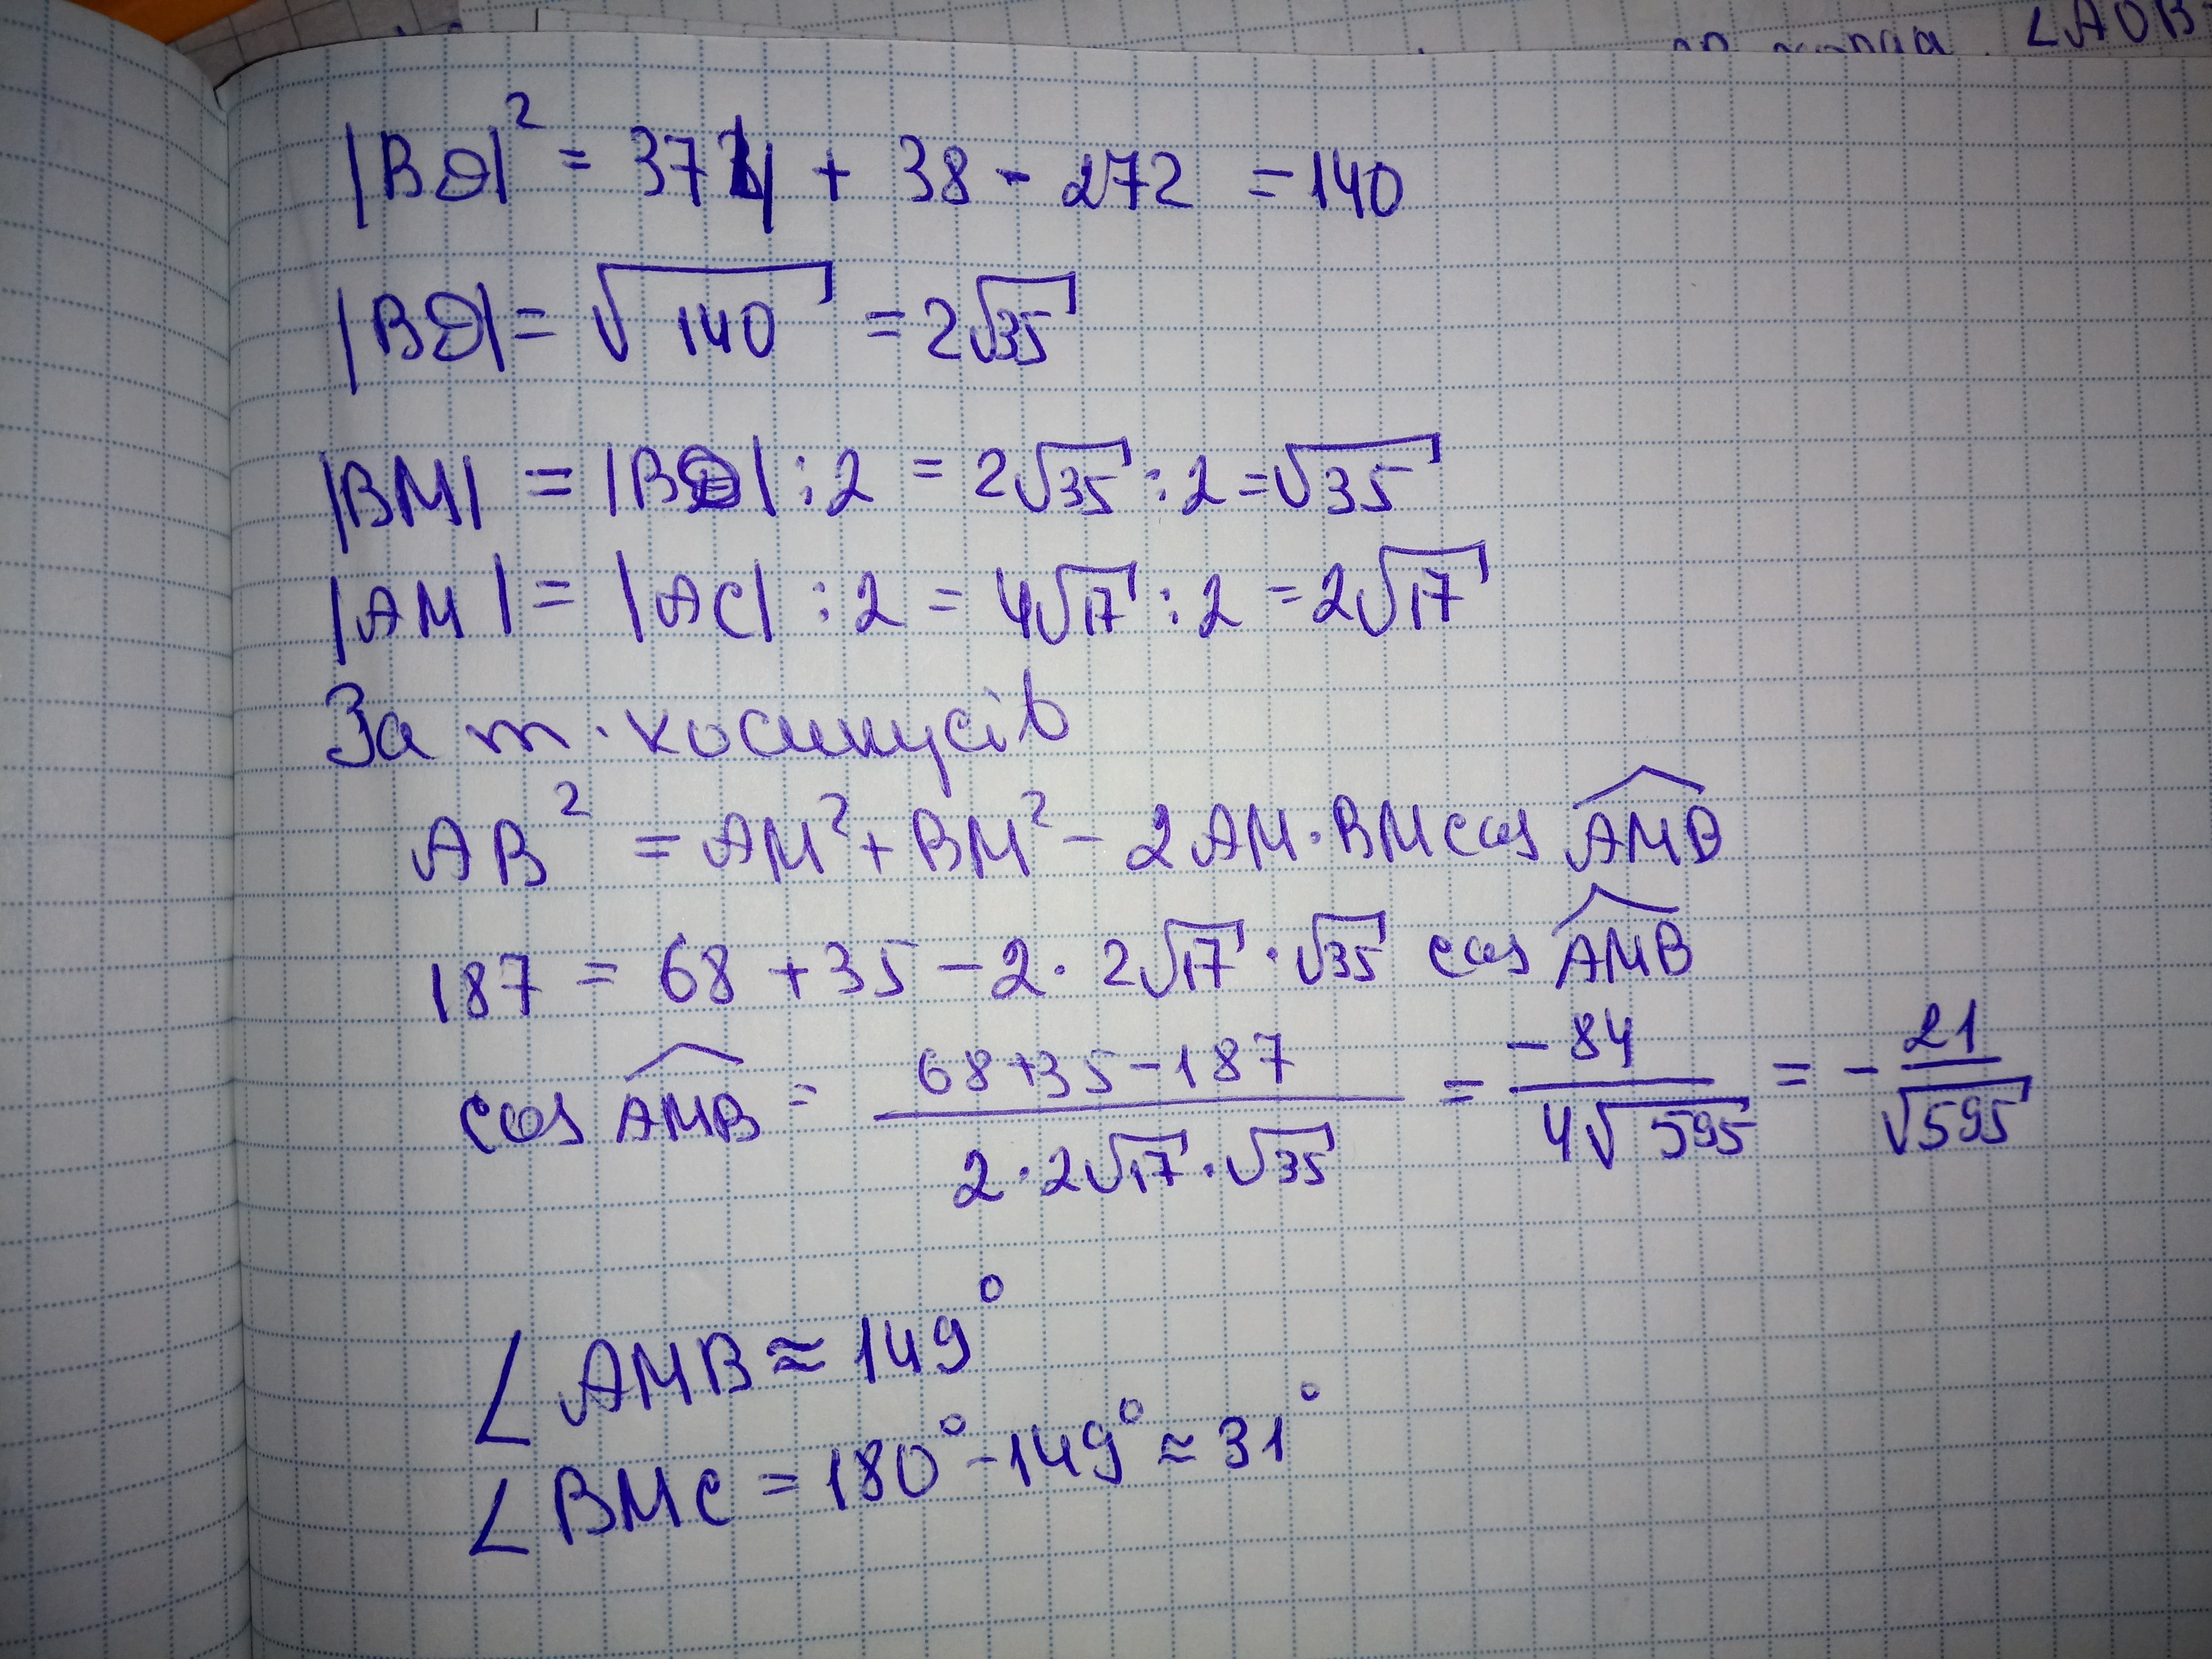 ∠AOB
|BD|² = 374 + 38 - 272 = 140
|BD| = √140 = 2√35
|BM| = |BD| : 2 = 2√35 : 2 = √35
|AM| = |AC| : 2 = 4√17 : 2 = 2√17
За т. косинусів
AB² = AM² + BM² - 2AM · BM cos AMB
187 = 68 + 35 - 2 · 2√17 · √35 cos AMB
cos AMB = (68+35-187)/(2·2√17·√35) = -84/(4√595) = -21/√595
∠AMB ≈ 149°
∠BMC = 180° - 149° ≈ 31°